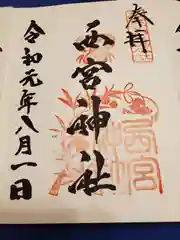 奉拝
西宮神社
令和元年八月一日
西宮